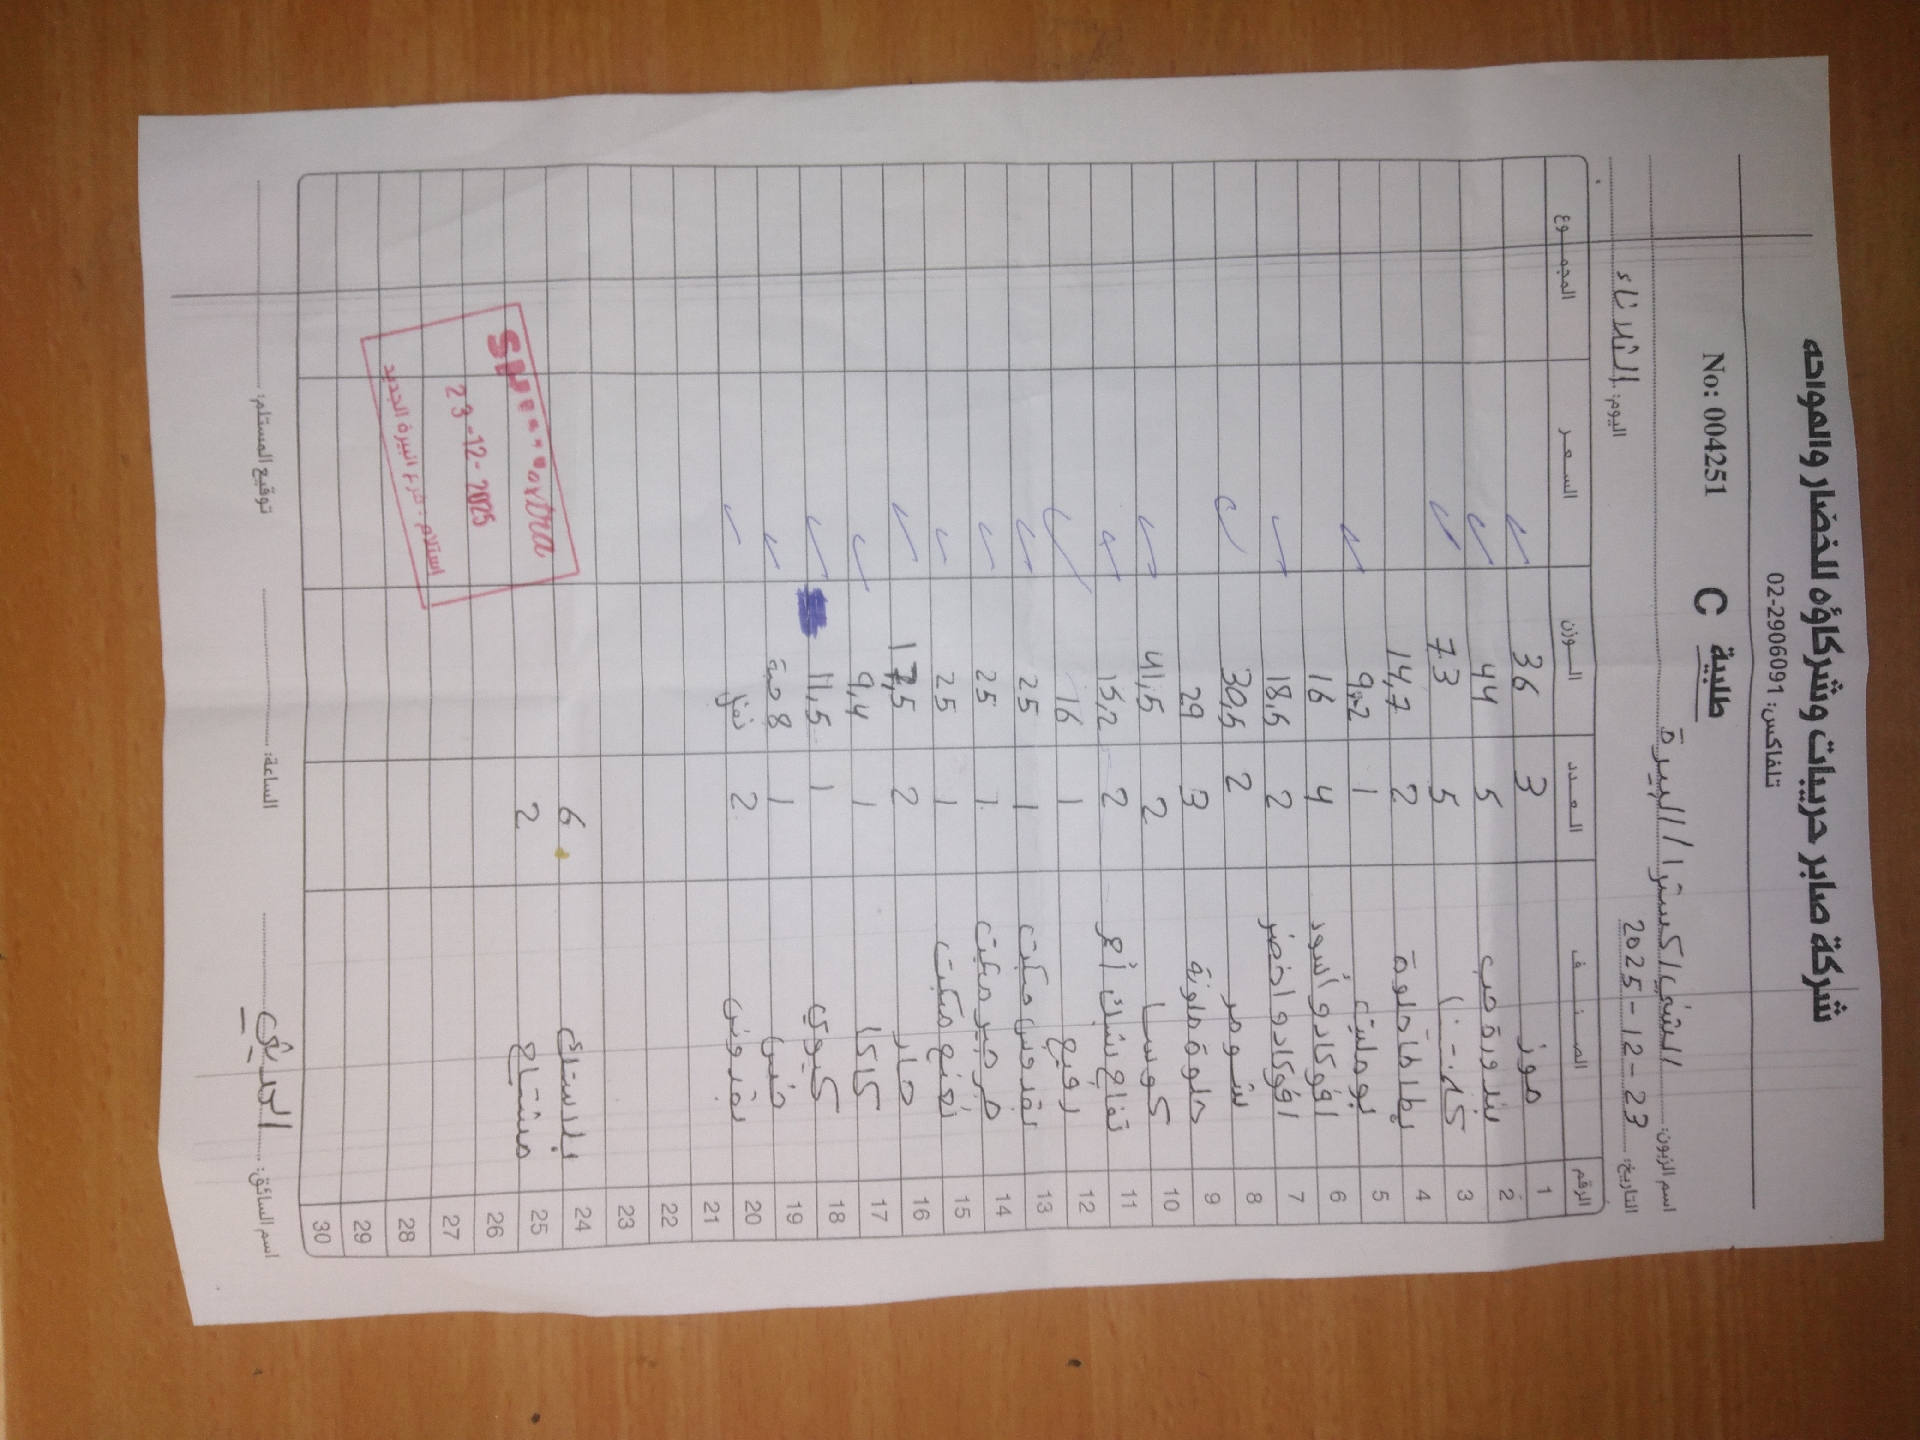 شركة صابر حريبات وشركاؤه للخضار والمواحه
تلفاكس: 02-2906091
No: 004251 طلبية C
اسم الزبون: الشني اكسترا / البيرة
التاريخ: 23-12-2025 اليوم: الثلاثاء
الرقم الصنف العدد الوزن السعر المجموع
1 موز 3 36
2 بندورة حب 5 44
3 5 73
4 بطاطا حلوة 2 14,7
5 بوملي 1 9,2
6 افوكادو أسود 4 16
7 افوكادو اخضر 2 18,5
8 شومر 2 30,5
9 حلوة ملونة 3 29
10 كوسا 2 41,5
11 تفاح 2 15,2
12 رفيع 1 16
13 بقدونس مكبت 1 25
14 جرجير مكبت 1 25
15 نعنع مكبت 1 25
16 حار 2 17,5
17 كاكا 1 9,4
18 كيوي 1 11,5
19 خس 1 8 حبة
20 بقدونس 2
21
22
23
24 بلاستك 6
25 مشتاح 2
26
27
28
29
30
23-12-2025
استلام - فرع البيرة الجديد
اسم السائق: الساعة: توقيع المستلم: